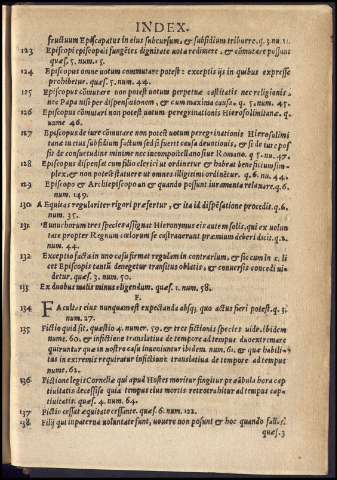 INDEX.
fructuum Episcapatus in eius subcursum, & subsidium tribuere. q. 3. nu. 11.
123 Episcopi episcopali fungẽtes dignitate uota redimere, & cõmutare possunt
quæs. 5. num. 15.
124 Episcopus omne uotum commutare potest: exceptis ijs in quibus expresse
prohibetur. quæs. 5. num. 44.
125 Episcopus cõmutare non potest uotum perpetuæ castitatis nec religionis,
nec Papa nisi per dispensationem, & cum maxima causa. q. 5. num. 45.
126 Episcopus cõmutari non potest uotum peregrinationis Hierosolimitanæ. q.
uame 46.
127 Episcopus de iure cõmutare non potest uotum peregrinationis Hierosulimi
tanæ in eius subsidium factum sed si fuerit causa deuotionis, & si de iure pos
sit de consuetudine minime nec incompostellano siue Romano. q. 5. nu. 47.
128 Episcopus dispensat cum filio clerici ut ordinetur & habeat beneficium sim-
plex, & non potest statuere ut omnes illigitimi ordinẽtur. q. 6. nu. 44.
129 Episcopo & Archiepiscopo an & quando possunt iuramenta relaxare. q. 6.
num. 149.
130 AEquitas regulariter rigori præfertur, & ita id dispositione procedit. q. 6.
num. 35.
131 Eunuchorum tres species assignat Hieronymus eis autem solis, qui ex uolun
tate propter Regnum cœlorum se castrauerunt præmium deberi dicit. q. 2.
num. 44.
132 Exceptio facta in uno casu firmat regulam in contrarium, & sic cum in c. li
cet Episcopis tantũ denegetur transitus oblatis, & conuersis concedi ui-
detur. quæs. 3. num. 50.
133 Ex duobus malis minus eligendum. quæs. 1. num. 58.
F.
134 FAcultas eius nunquam est expectanda absq; quo actus fieri potest. q. 3.
num. 27.
135 Fictio quid sit. quæstio 4. numer. 59. & tres fictionis species uide. ibidem
nume. 60. & infictione translatiua de tempore ad tempus duo extrema re
quiruntur quæ in nostro casu inueniuntur ibidem. num. 61. & quæ habili-
tas in extremis requiratur infictione translatiua de tempore ad tempus
nume. 62.
136 Fictione legis Corneliæ qui apud Hostes moritur fingitur per aũ bula hora cap
tiuitatis decessisse quia tempus eius mortis retrotrahitur ad tempus cap-
tiuitatis. quæs. 4. num. 64.
137 Fictio cessat æquitate cessante. quæs. 6. num. 122.
138 Filij qui in paterna uoluntate sunt, uouere non possunt & hoc quando
quæs. 3